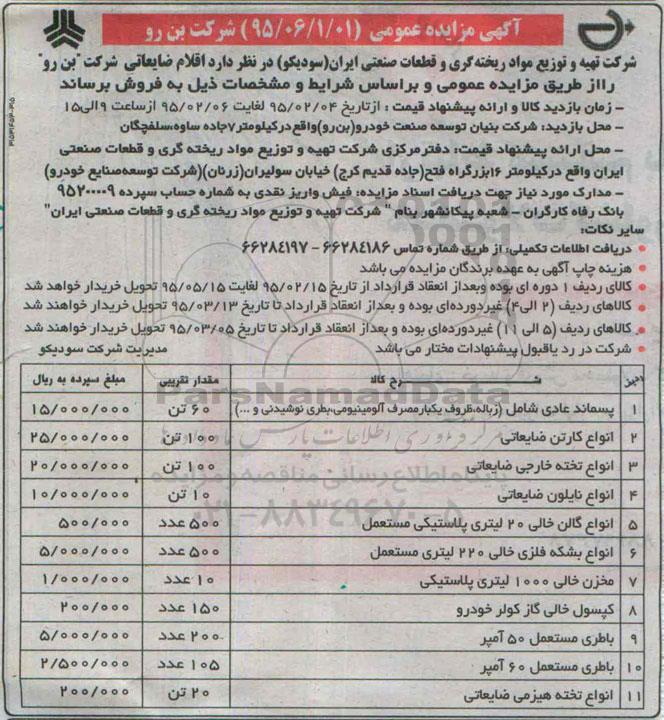 آگهی مزایده عمومی (۹۵/۰۶/۱/۰۱) شرکت بن رو
شرکت تهیه و توزیع مواد ریخته گری و قطعات صنعتی ایران(سودیکو) در نظر دارد اقلام ضایعاتی شرکت "بن رو"
رااز طریق مزایده عمومی و براساس شرایط و مشخصات ذیل به فروش برساند
– زمان بازدید کالا و ارائه پیشنهاد قیمت : ازتاریخ ۹۵/۰۲/۰۴ لغایت ۹۵/۰۲/۰۶ ازساعت ۹الی۱۵
– محل بازدید: شرکت بنیان توسعه صنعت خودرو(بن رو)واقع درکیلومتر۷جاده ساوه،سلفچگان
– محل ارائه پیشنهاد قیمت: دفترمرکزی شرکت تهیه و توزیع مواد ریخته گری و قطعات صنعتی
ایران واقع درکیلومتر ۱۶بزرگراه فتح(جاده قدیم کرج) خیابان سولیران(زرنان)(شرکت توسعه صنایع خودرو)
– مدارک مورد نیاز جهت دریافت اسناد مزایده: فیش واریز نقدی به شماره حساب سپرده ۹۵۲۰۰۰۰۹
بانک رفاه کارگران – شعبه پیکانشهر بنام " شرکت تهیه و توزیع مواد ریخته گری و قطعات صنعتی ایران"
سایر نکات:
• دریافت اطلاعات تکمیلی: از طریق شماره تماس ۶۶۲۸۴۱۸۶ – ۶۶۲۸۴۱۹۷
• هزینه چاپ آگهی به عهده برندگان مزایده می باشد
• کالای ردیف ۱ دوره ای بوده وبعداز انعقاد قرارداد از تاریخ ۹۵/۰۲/۱۵ لغایت ۹۵/۰۵/۱۵ تحویل خریدار خواهد شد
• کالاهای ردیف (۲ الی۴) غیردوره‌ای بوده و بعداز انعقاد قرارداد تا تاریخ ۹۵/۰۳/۱۳ تحویل خریدار خواهند شد
• کالاهای ردیف (۵ الی ۱۱) غیردوره‌ای بوده و بعداز انعقاد قرارداد تا تاریخ ۹۵/۰۳/۰۵ تحویل خریدار خواهند شد
• شرکت در رد یاقبول پیشنهادات مختار می باشد مدیریت شرکت سودیکو
ردیف شرح کالا مقدار تقریبی مبلغ سپرده به ریال
۱ پسماند عادی شامل (زباله،ظروف یکبارمصرف آلومینیومی،بطری نوشیدنی و ...) ۶۰ تن ۱۵/۰۰۰/۰۰۰
۲ انواع کارتن ضایعاتی ۱۰۰ تن ۲۵/۰۰۰/۰۰۰
۳ انواع تخته خارجی ضایعاتی ۱۰۰ تن ۲۰/۰۰۰/۰۰۰
۴ انواع نایلون ضایعاتی ۱۰ تن ۱۰/۰۰۰/۰۰۰
۵ انواع گالن خالی ۲۰ لیتری پلاستیکی مستعمل ۵۰۰ عدد ۵۰۰/۰۰۰
۶ انواع بشکه فلزی خالی ۲۲۰ لیتری مستعمل ۵۰۰ عدد ۵/۰۰۰/۰۰۰
۷ مخزن خالی ۱۰۰۰ لیتری پلاستیکی ۱۰ عدد ۱/۰۰۰/۰۰۰
۸ کپسول خالی گاز کولر خودرو ۱۵۰ عدد ۲۰۰/۰۰۰
۹ باطری مستعمل ۵۰ آمپر ۲۰۰ عدد ۵/۰۰۰/۰۰۰
۱۰ باطری مستعمل ۶۰ آمپر ۱۰۵ عدد ۲/۵۰۰/۰۰۰
۱۱ انواع تخته هیزمی ضایعاتی ۲۰ تن ۲۰۰/۰۰۰
ParsNamadData
پایگاه اطلاع رسانی مناقصه و مزایده
۰۲۱-۸۸۳۴۹۶۷۰-۵